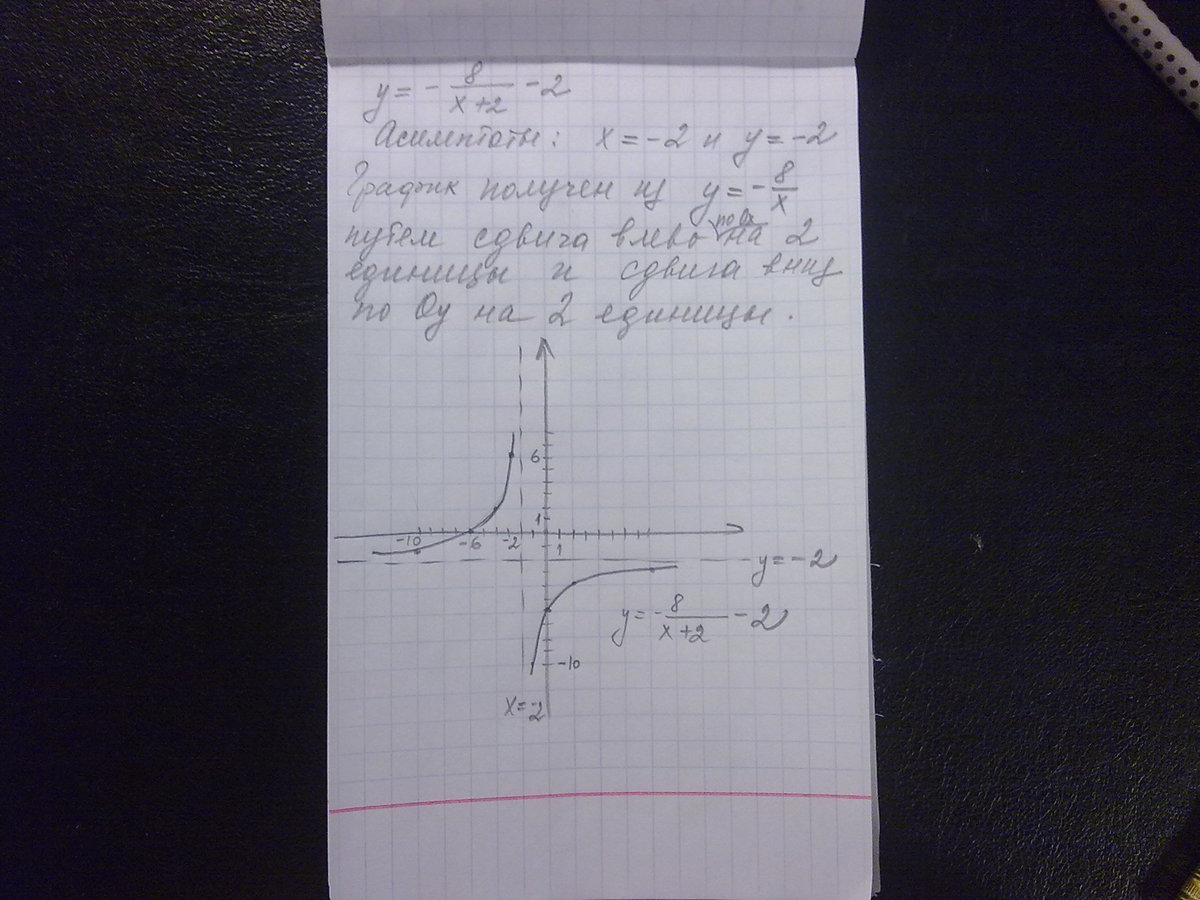 y = - 8/(x+2) - 2
Асимптоты: x = -2 и y = -2
График получен из y = - 8/x
путем сдвига влево по Ox на 2
единицы и сдвига вниз
по Oy на 2 единицы.
6
1
-10 -6 -2 1
y = -2
y = - 8/(x+2) - 2
-10
x = -2